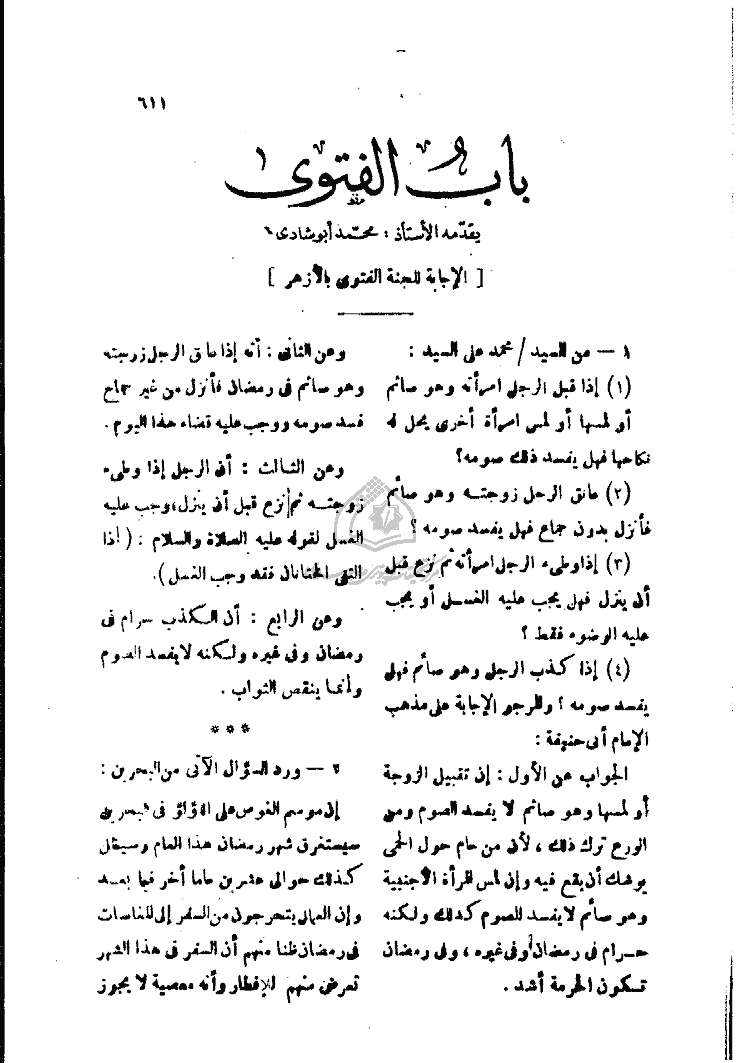 ٦١١
باب الفتوى
يقدّمه الأستاذ : محمّد أبوشادى
[ الإجابة للجنة الفتوى بالأزهر ]
١ — من السيد / محمد على السيد :
(١) إذا قبل الرجل امرأته وهو صائم
أو لمسها أو لمس امرأة أخرى يحل له
نكاحها فهل يفسد ذلك صومه ؟
(٢) عانق الرجل زوجته وهو صائم
فأنزل بدون جماع فهل يفسد صومه ؟
(٣) إذا وطىء الرجل امرأته ثم نزع قبل
أن ينزل فهل يجب عليه الغسل أو يجب
عليه الوضوء فقط ؟
(٤) إذا كذب الرجل وهو صائم فهل
يفسد صومه ؟ والمرجو الإجابة على مذهب
الإمام أبى حنيفة :
الجواب عن الأول : إن تقبيل الزوجة
أو لمسها وهو صائم لا يفسد الصوم ومن
الورع ترك ذلك ، لأن من حام حول الحمى
يوشك أن يقع فيه وإن لمس المرأة الأجنبية
وهو صائم لا يفسد الصوم كذلك ولكنه
حرام فى رمضان أوفى غيره ، وفى رمضان
تكون الحرمة أشد .
وعن الثانى : أنه إذا عانق الرجل زوجته
وهو صائم فى رمضان فأنزل من غير جماع
فسد صومه ووجب عليه قضاء هذا اليوم .
وعن الثالث : أن الرجل إذا وطىء
زوجته ثم نزع قبل أن ينزل ، وجب عليه
الغسل لقوله عليه الصلاة والسلام : ( إذا
التقى الختانان فقد وجب الغسل ) .
وعن الرابع : أن الكذب حرام فى
رمضان وفى غيره ولكنه لا يفسد الصوم
وأنما ينقص الثواب .
* * *
٢ — ورد السؤال الآتى من البحرين :
إن موسم الغوص على اللؤلؤ فى البحرين
سيستغرق شهر رمضان هذا العام وسيظل
كذلك حوالى عشرين عاما أخر فيما بعد
وإن العمال يتحرجون من السفر إلى المغاصات
فى رمضان ظنا منهم أن السفر فى هذا الشهر
تعرض منهم للإفطار وأنه معصية لا يجوز